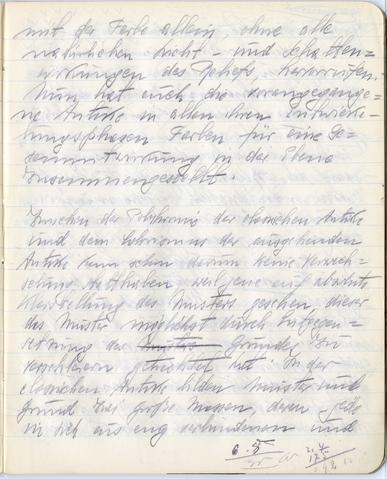 mit der Farbe allein, ohne alle
natürlichen Licht- und Schatten-
wirkungen des Reliefs, hervorrufen.
Nun hat auch die vorangegange-
ne Antike in allen ihren Entwick-
lungsphasen Farben für eine Ge-
samtwirkung in der Ebene
zusammengestellt.
Zwischen der Polychromie der classischen Antike
und dem Colorismus der ausgehenden
Antike kann schon darum keine Verwech-
selung statthaben weil jene auf absolute
Klarstellung des Musters gesehen dieser
das Muster möglichst durch Entgegen-
setzung des Grundes zu
verschleiern getrachtet hat. In der
classischen Antike bilden Muster und
Grund zwei große Massen, deren jede
in sich als eng verbundenen und
6.8